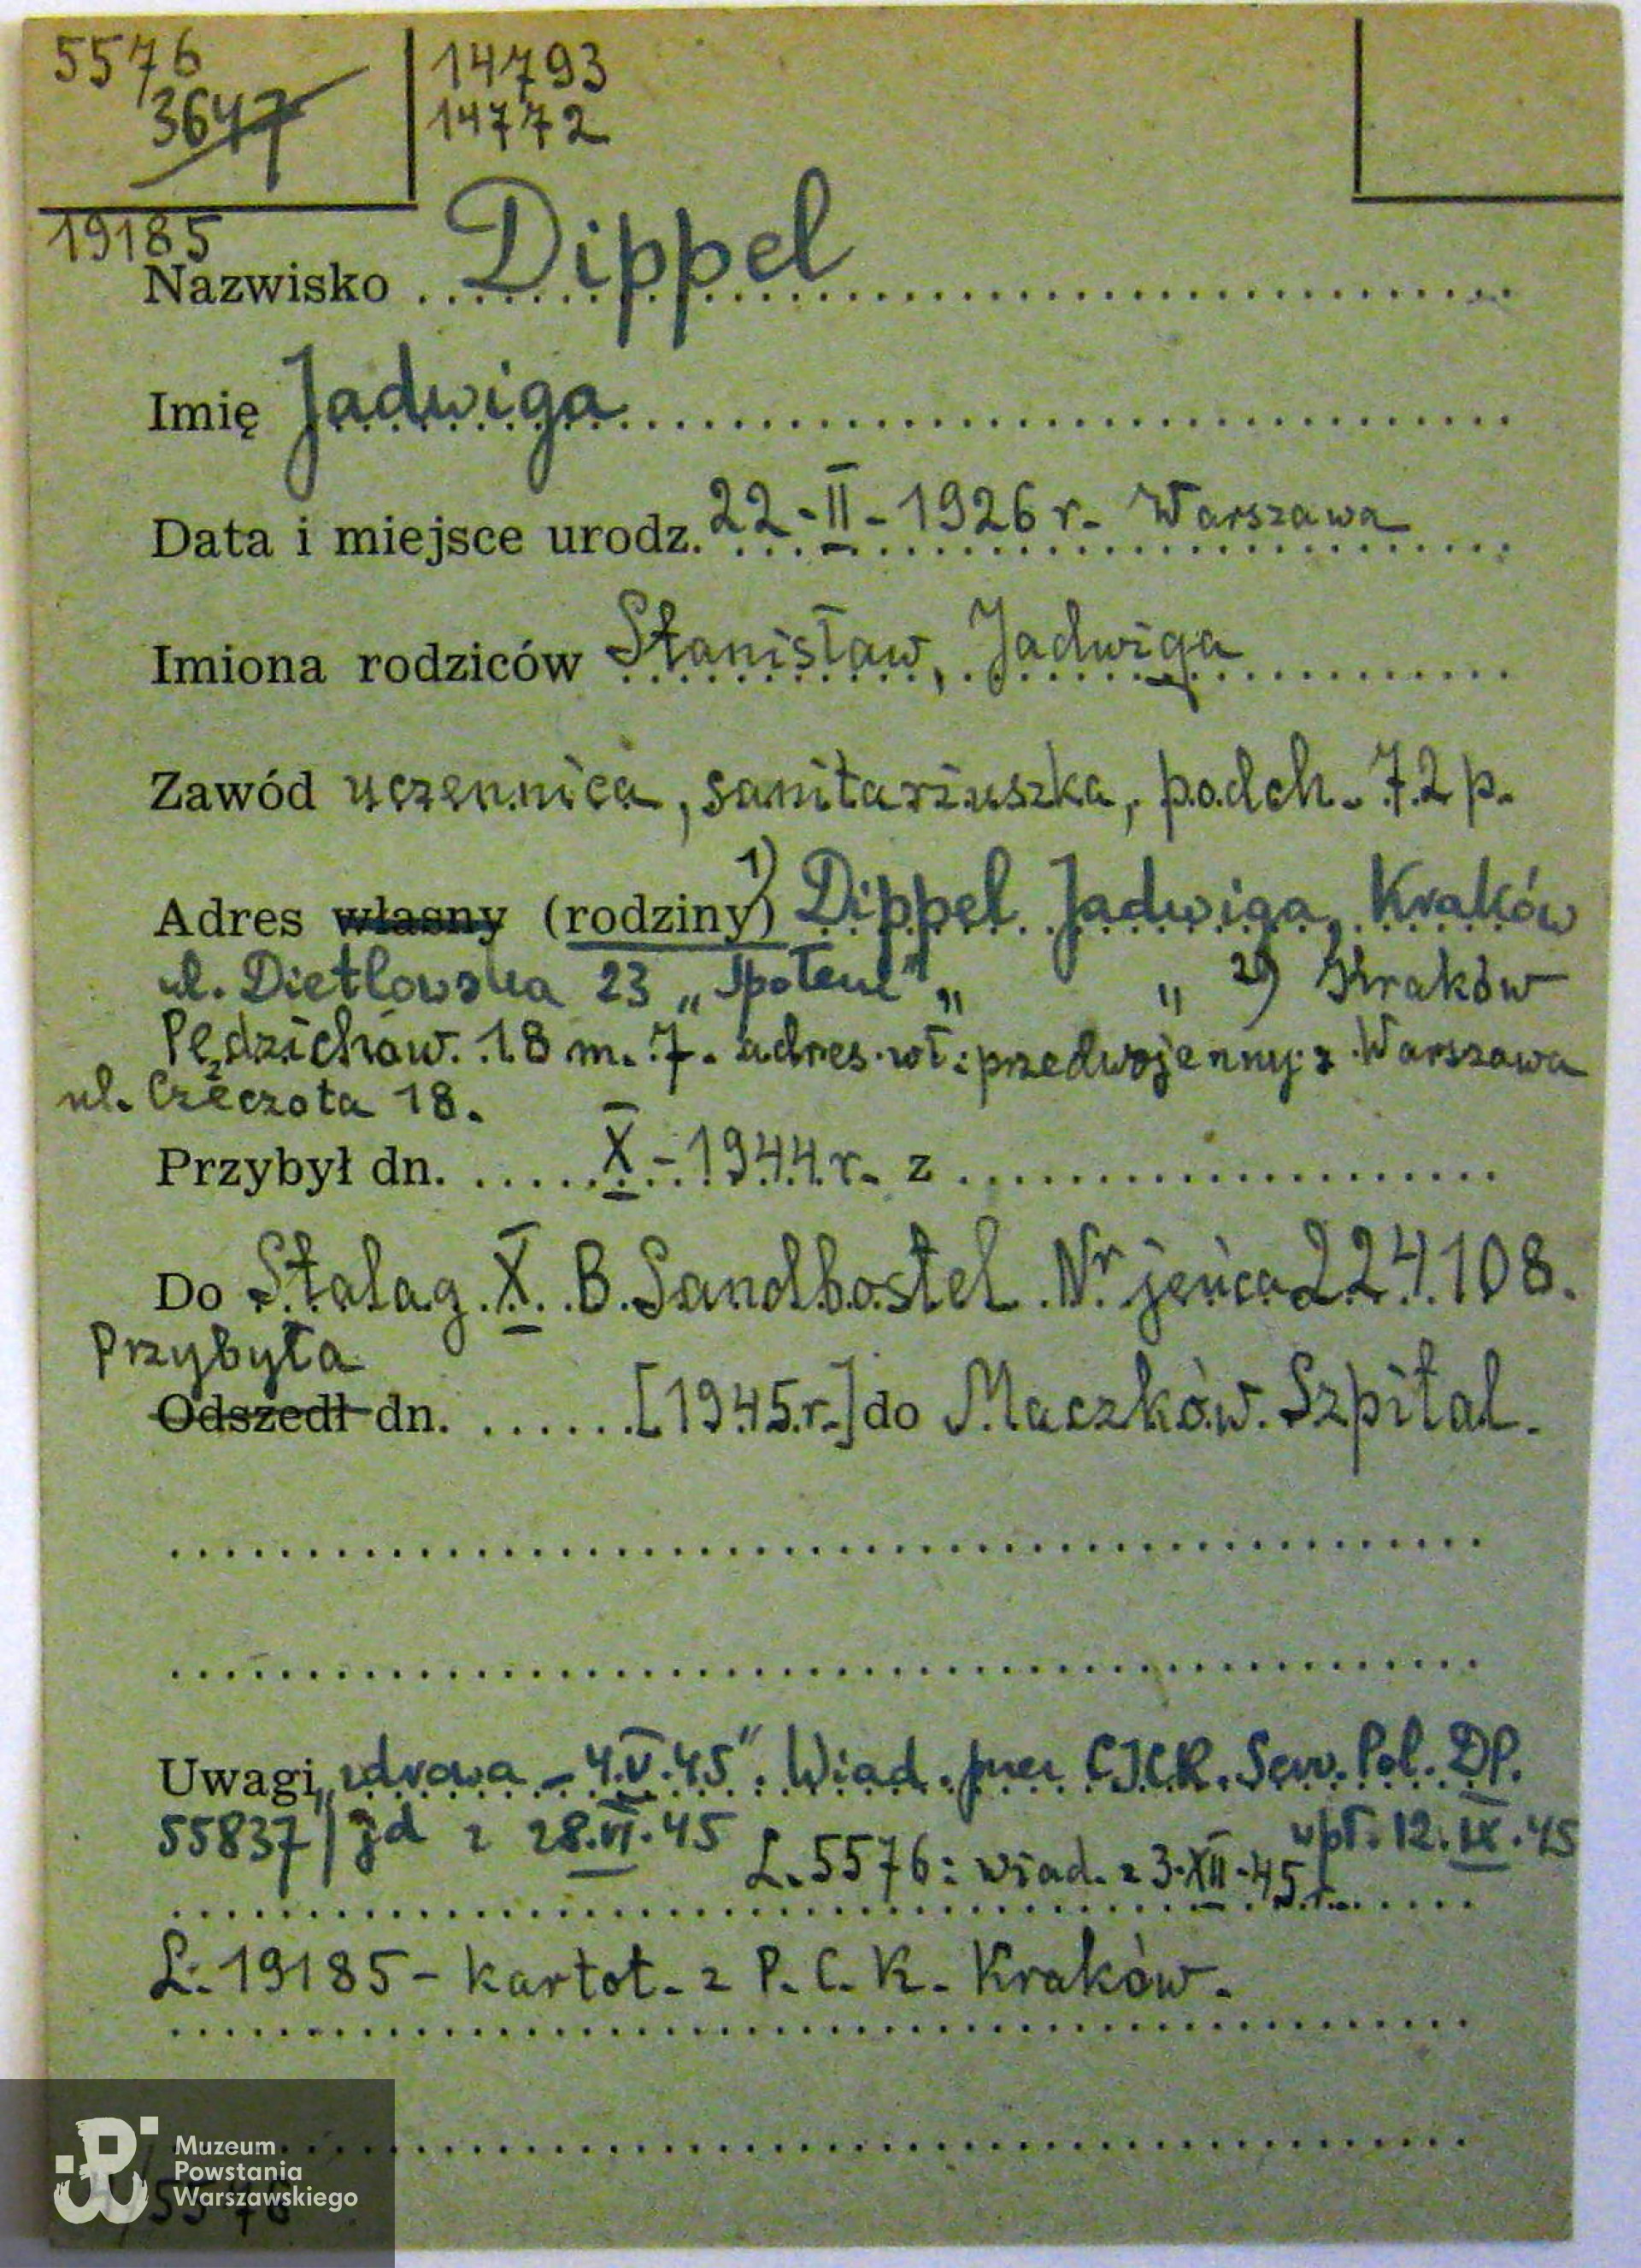 5576
3647
14793
14772
19185
Nazwisko Dippel
Imię Jadwiga
Data i miejsce urodz. 22-II-1926 r. Warszawa
Imiona rodziców Stanisław, Jadwiga
Zawód uczennica, sanitariuszka, podch. 72 p.
Adres własny (rodziny) 1) Dippel Jadwiga, Kraków
ul. Dietlowska 23 „Społem" „ „ 2) Kraków
Pędzichów 18 m. 7. adres wł. przedwojenny: Warszawa
ul. Czeczota 18.
Przybył dn. X-1944 r. z
Do Stalag X B Sandbostel Nr jeńca 224108.
Przybyła
Odszedł dn. [1945 r.] do Maczków. Szpital.
Uwagi „zdrowa - 4.V.45". Wiad. przez C.I.C.R. Serv. Pol. DP.
55837/jd z 28.VI.45 wpł. 12.IX.45
L. 5576: wiad. z 3-XII-45 r.
L. 19185 - kartot. z P.C.K. Kraków.
Muzeum
Powstania
Warszawskiego
5576